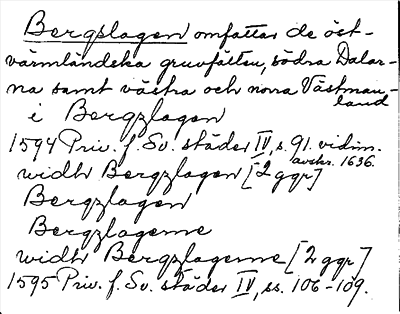 Bergslagen omfattar de öst-
värmländska gruvfälten, södra Dalar-
na samt västra och norra Västman-
land
i Bergzlagon
1594 Priv. f. Sv. städer IV, s. 91. vidim.
avskr. 1636.
widh Bergzlagon [2 ggr]
Bergzlagon
Bergzlagerne
widh Bergzlagerne [2 ggr]
1595 Priv. f. Sv. städer IV, ss. 106-109.